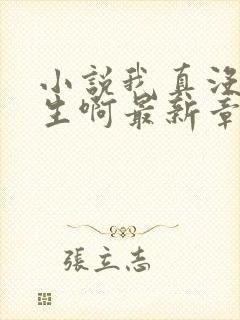 小説我真没
生啊最新章
張立志